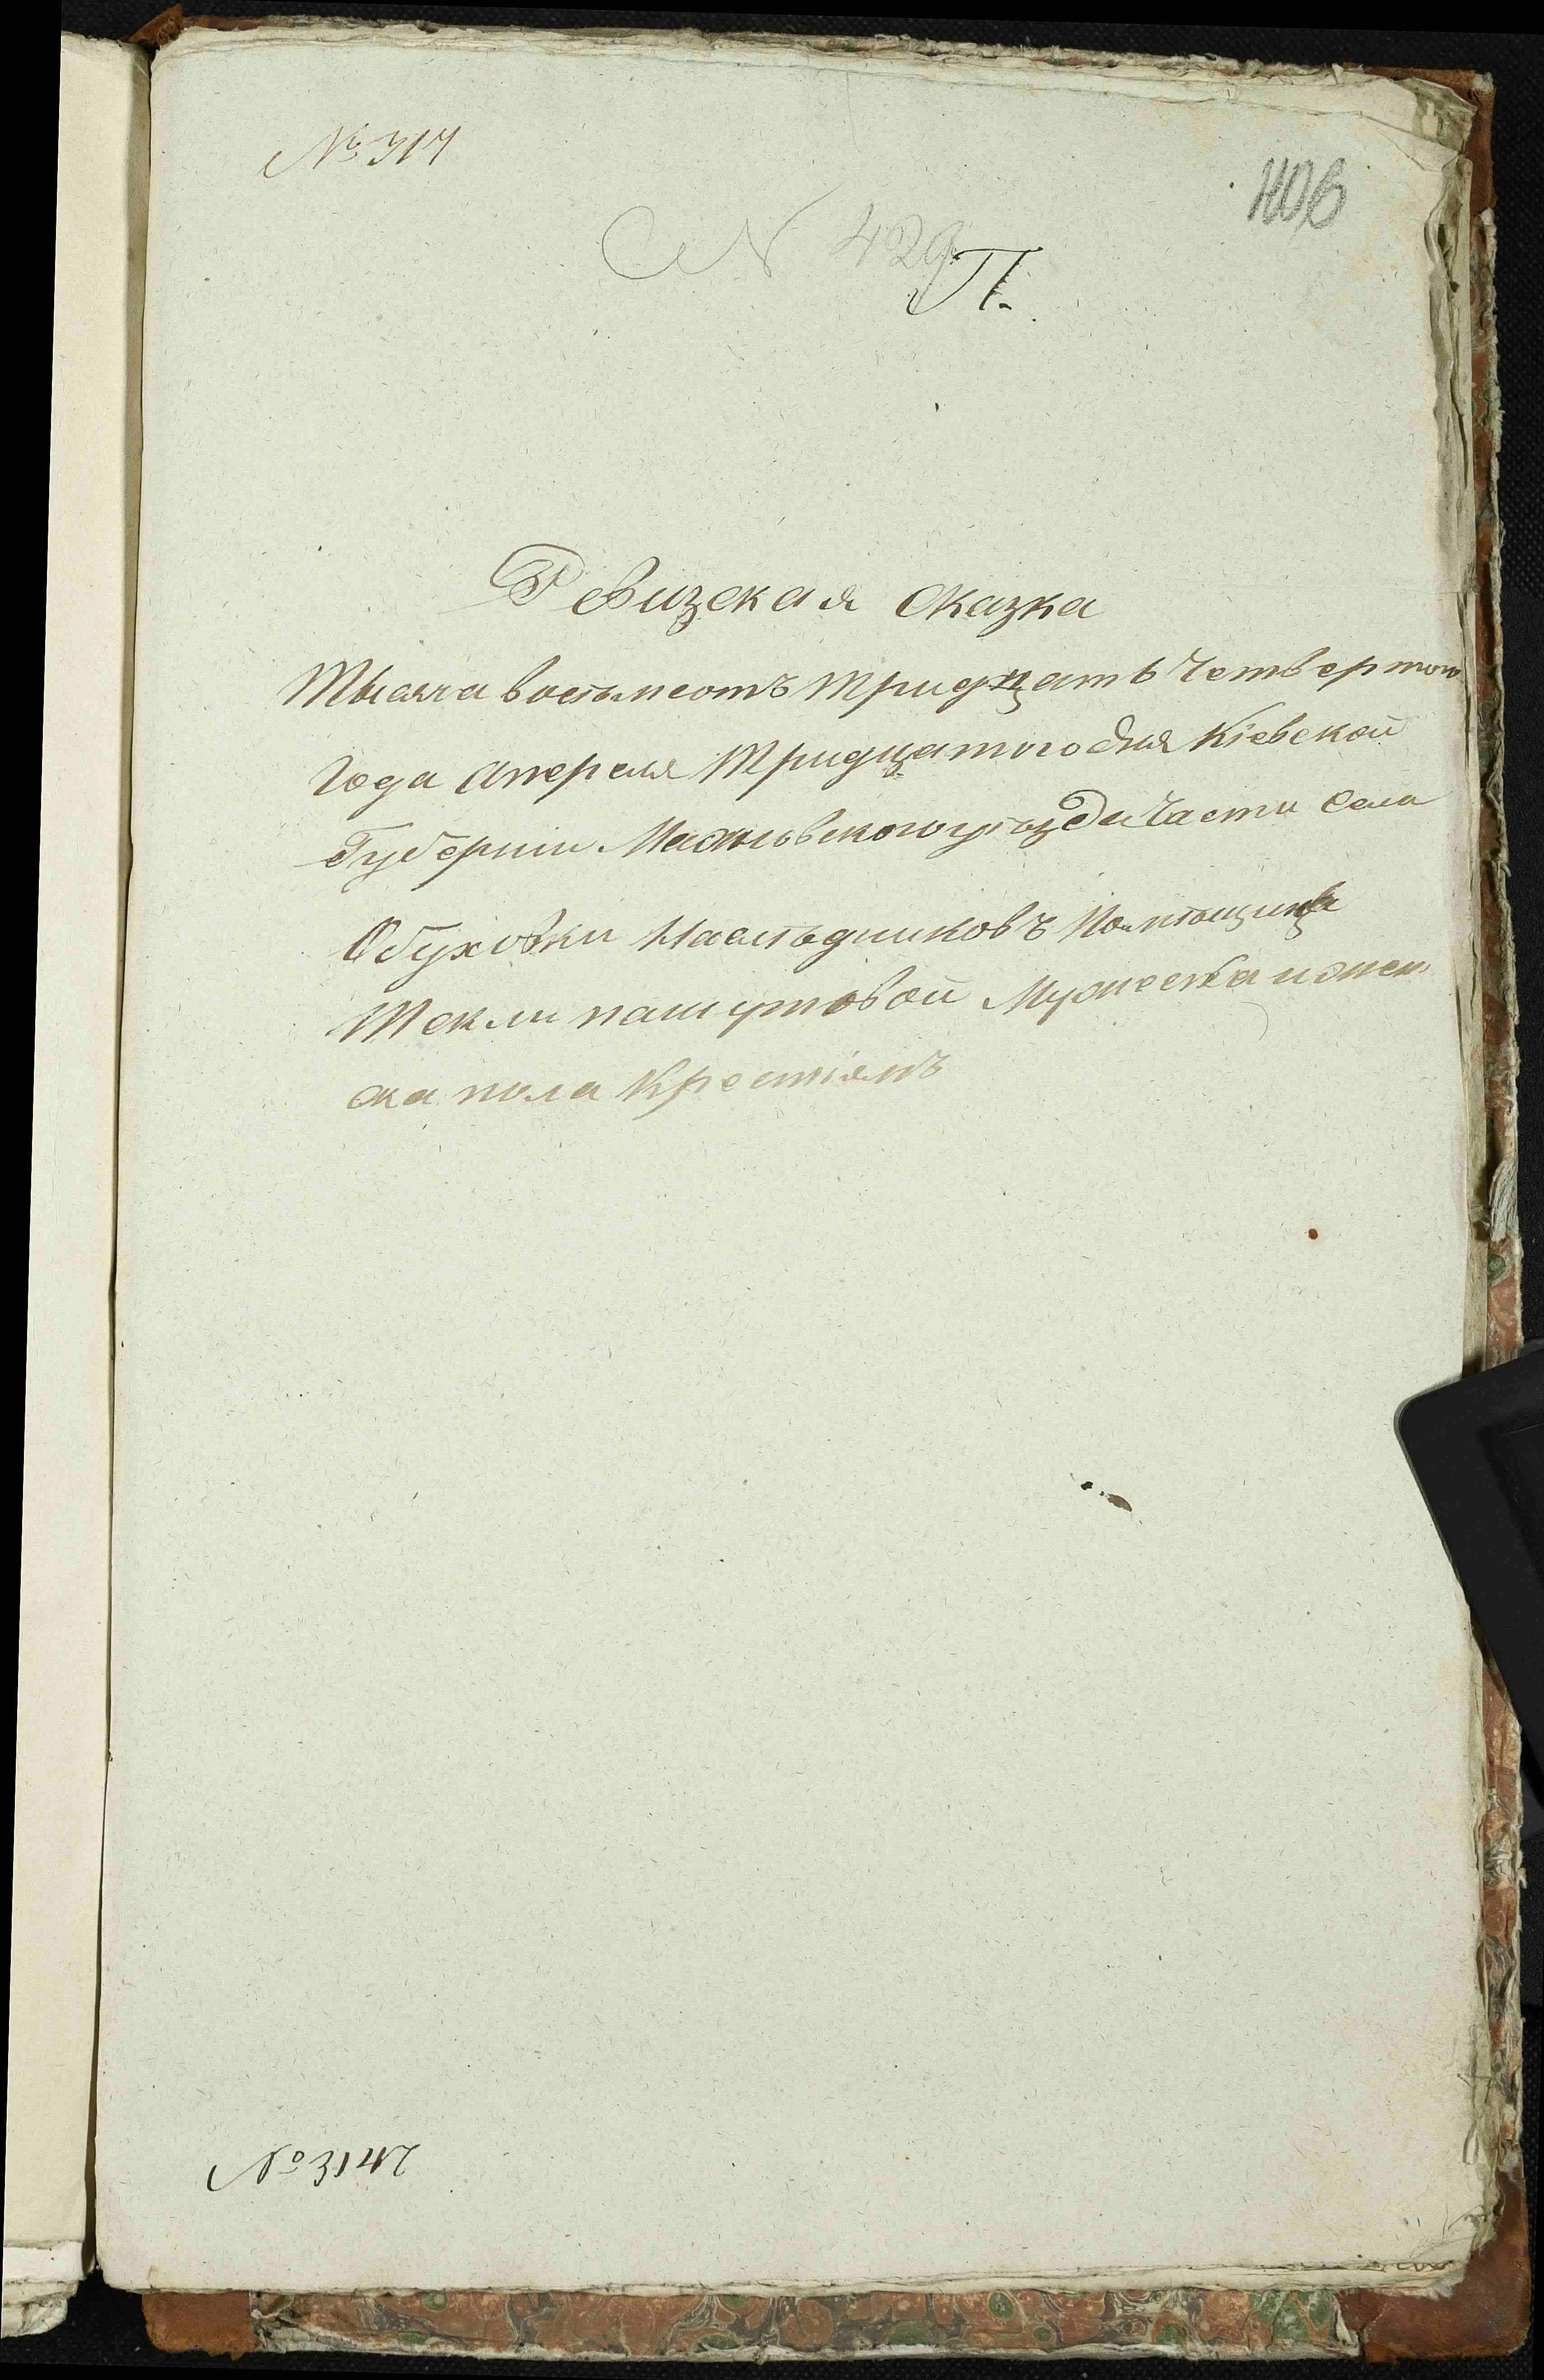 № 317
406
N 429
П.
Ревизская Сказка
Тысяча восемсотъ тридцать Четвертого
Года Апереля Тридцатого дня Кіевской
Губерніи Махновского уѣзда Части Села
Обуховки Наслѣдниковъ Помѣщицы
Текли пашутовой Мужеска и жен
ска пола Крестіянъ
№ 3147